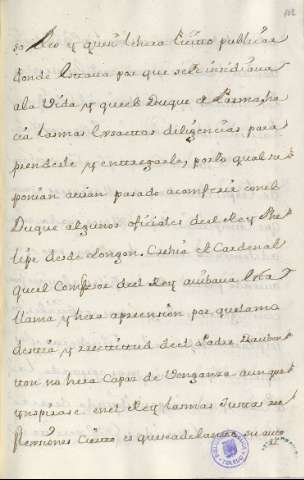 so Reo y quien lo hera Cierto publicar
donde estaua por que sele insidiaua
ala Vida, y queel Duque de Parma, ha
cia las mas exsactas diligencias para
prenderle, y entregarle, por lo qual su
ponian auian pasado a conferir conel
Duque algunos oficiales del Rey Phe
lipe desde Longon. Crehia el Cardenal
quel Confesor del Rey auibaua esta
llama, y hera aprension por quelamo
destia, y rectitud del Padre Dauben
ton no hera Capaz de Venganza aunque
ynspirase enel Rey las mas Justas re
flexiones Cierto es que se adelanto su